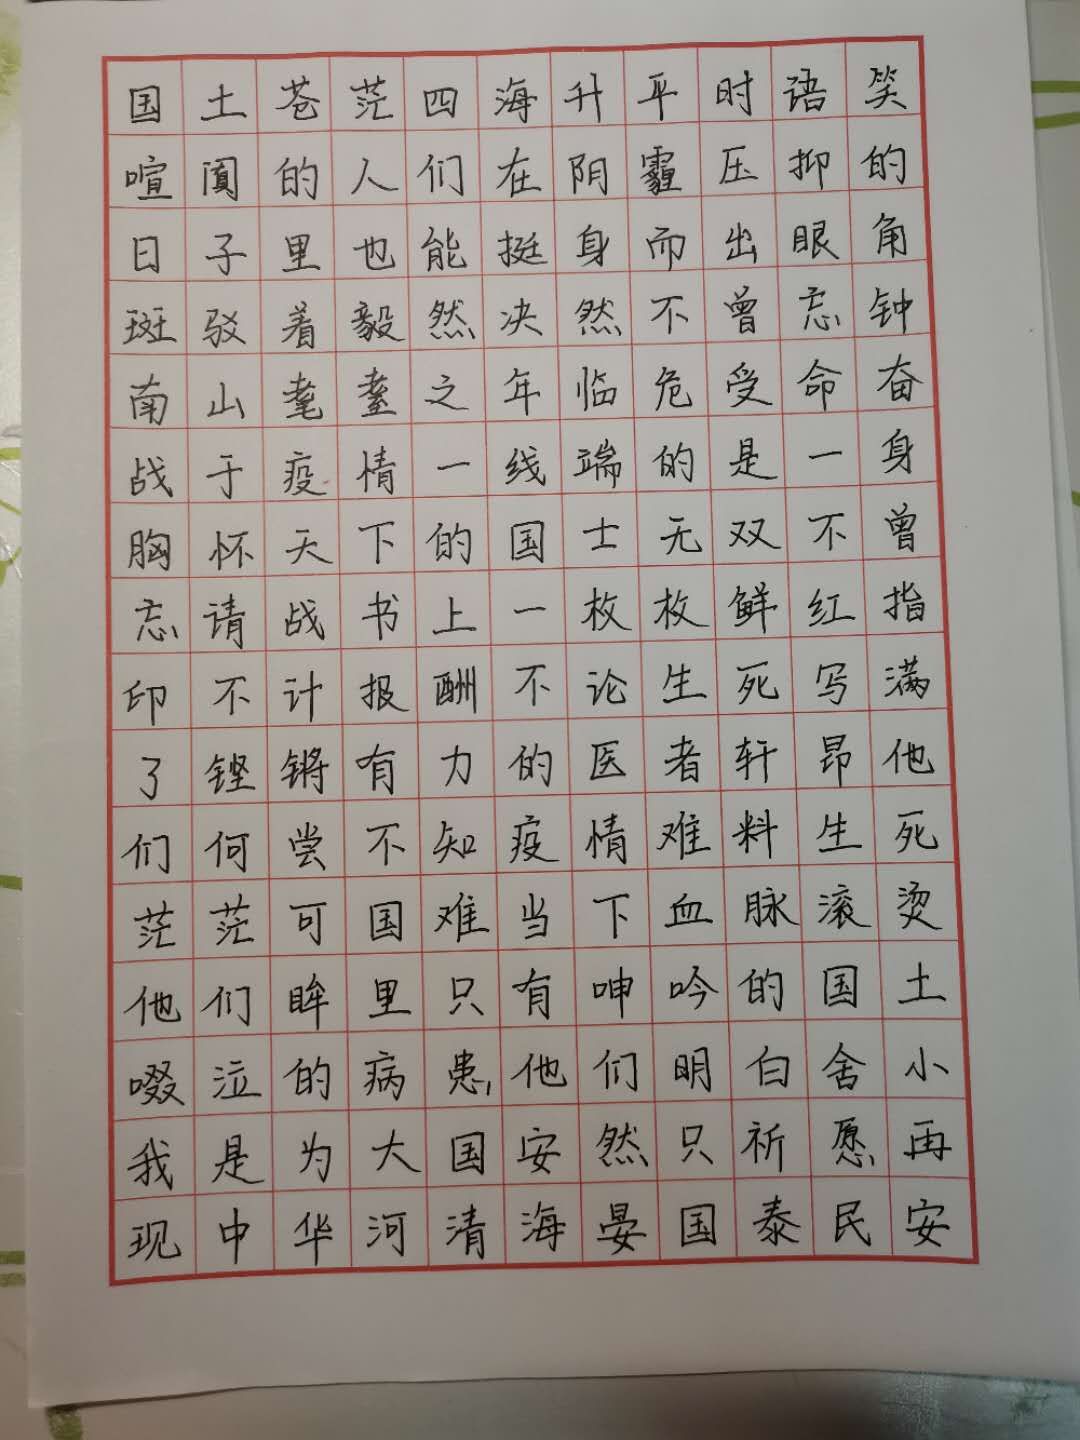 国土苍茫四海升平时语笑
喧阗的人们在阴霾压抑的
日子里也能挺身而出眼角
斑驳着毅然决然不曾忘钟
南山耄耋之年临危受命奋
战于疫情一线端的是一身
胸怀天下的国士无双不曾
忘请战书上一枚枚鲜红指
印不计报酬不论生死写满
了铿锵有力的医者轩昂他
们何尝不知疫情难料生死
茫茫可国难当下血脉滚烫
他们眸里只有呻吟的国土
啜泣的病患他们明白舍小
我是为大国安然只祈愿再
现中华河清海晏国泰民安